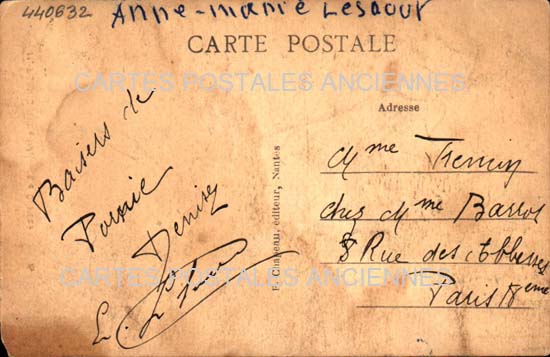 440632
Anne-marie Lesaout
CARTE POSTALE
CARTES POSTALES ANCIENNES
Adresse
Baisers de
Pornic
Denise
F. Chapeau, éditeur, Nantes
Mme
chez Mme Barrot
8 Rue des Abbesses
Paris 18eme
CARTES POSTALES ANCIENNES